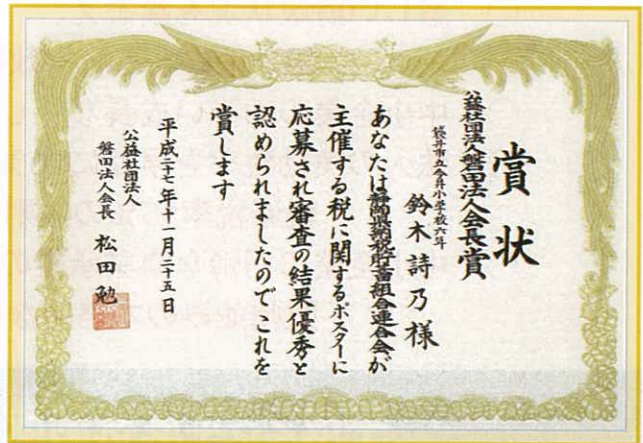 賞状
公益社団法人磐田法人会長賞
袋井市立今井小学校六年
鈴木詩乃様
あなたは静岡県納税貯蓄組合連合会が
主催する税に関するポスターに
応募され審査の結果優秀と
認められましたのでこれを
賞します
平成二十七年十一月二十五日
公益社団法人
磐田法人会長 松田勉